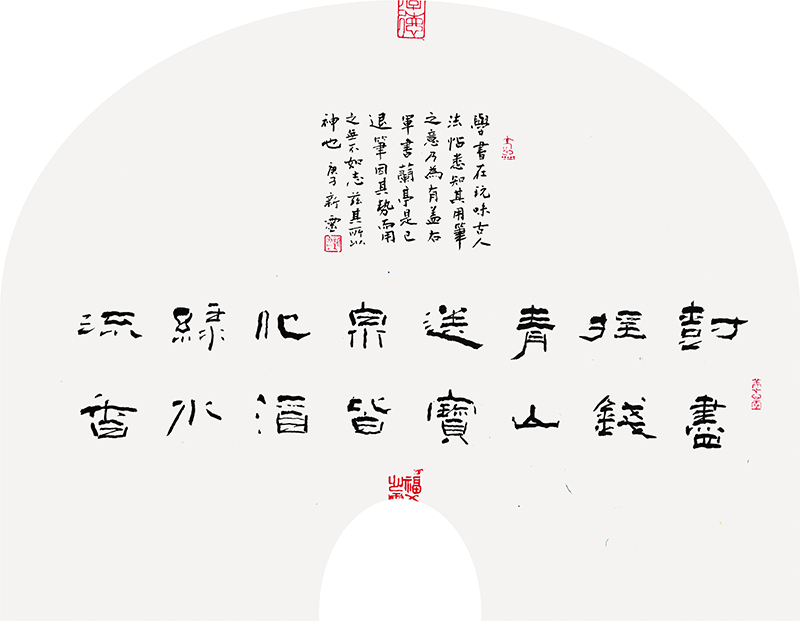 學書在玩味古人
法帖悉知其用筆
之意乃為有益右
軍書蘭亭是已
退筆因其勢而用
之無不如志茲其所以
神也 庚子新
尌盡
搖錢
青山
送寶
泉皆
化酒
綠水
流香